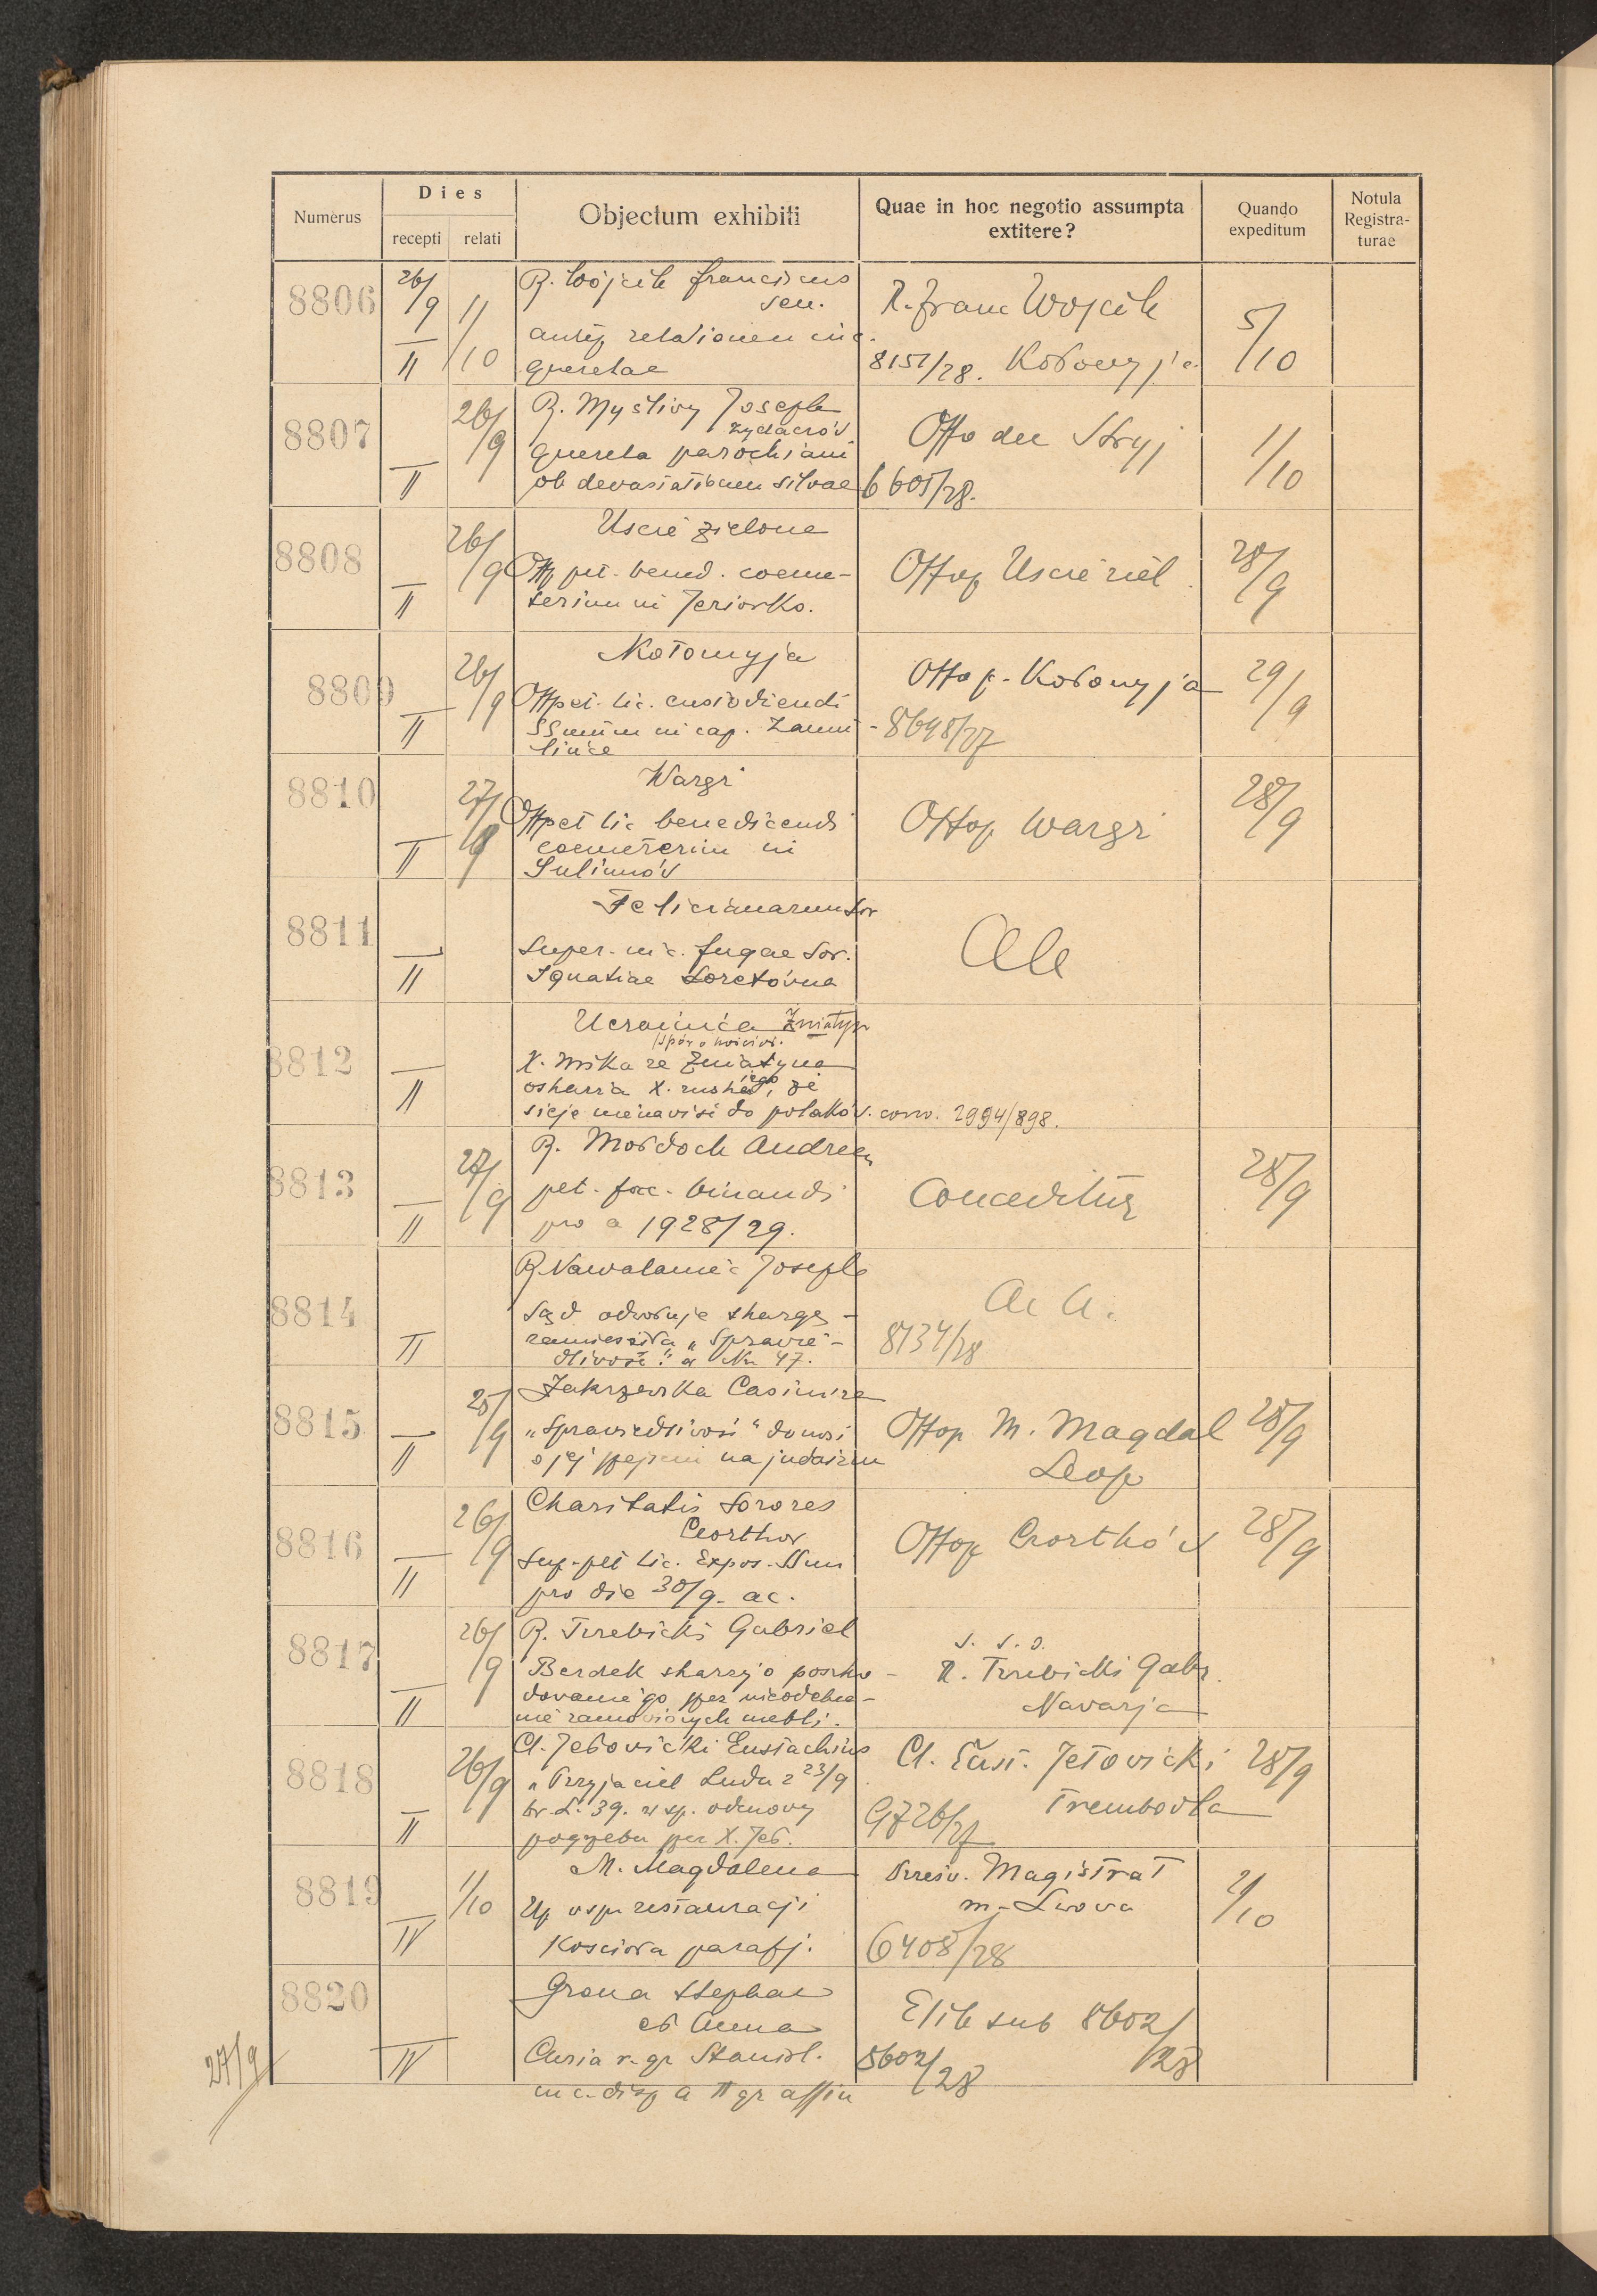 Numerus
Dies
recepti relati
Objectum exhibiti
Quae in hoc negotio assumpta
extitere?
Quando
expeditum
Notula
Registra-
turae
8806
26/9
II
1/10
R. Wójcik Franciscus
sen.
relationem inc.
querelae
R. Franc Wojcik
8151/28. Kołomyja
5/10
8807
II
26/9
R. Myśliwy Joseph
Żydaczów
querela parochiani
ob devastationem silvae
Offo dec Stryj
6605/28.
1/10
8808
II
26/9
Uscie zielone
Off pet. bened. coeme-
terium in Jeziorko.
Offop Uscie ziel.
28/9
8809
II
26/9
Kołomyja
Off pet. lic. custodiendi
SSmum in cap. Zamu-
lińce
Offo p. Kołomyja
8698/27
29/9
8810
II
27/9
Waręż
Off pet lic benedicendi
coemeterium in
Sulimów
Offop Waręż
28/9
8811
II
Felicianarum Sor
Super. in c. fugae Sor.
Ignatiae Loretówna
8812
II
Ucrainica Żniatyn
X. Mika ze Żniatyna
oskarża X. ruskiego, że
sieje nienawiść do polaków. conv. 2994/898.
8813
II
27/9
R. Mołdoch Andreas
pet. fac. binandi
pro a 1928/29.
Conceditur
28/9
8814
II
R. Nawalaniec Joseph
Sąd odwołuje skargę
zamieszcza „Sprawie-
dliwość" a Nr 47.
a. a.
8134/28
8815
II
25/9
Zakrzewska Casimira
„Sprawiedliwość" donosi
o jej przejściu na judaizm
Offop M. Magdal
Leop
28/9
8816
II
26/9
Charitatis Sorores
Czortków
Sup. pet lic. Expos. SSmi
pro die 30/9. ac.
Offop Czortków
28/9
8817
II
26/9
R. Trzebicki Gabriel
Berdek skarży o poszko-
dowanie go przez nieodebra-
nie zamówionych mebli.
S. S. O.
R. Trzebicki Gabr.
Nawarja
8818
II
26/9
Cl. Jełowicki Eustachius
„Przyjaciel Ludu z 23/9
br. L. 39. w sp. odmowy
pogrzebu przez X. Jeł.
Cl. Eust. Jełowicki
Trembowla
9726/27
28/9
8819
IV
1/10
M. Magdalena
restauracji
Kościoła parafj.
Prześw. Magistrat
m. Lwowa
6408/28
2/10
8820
IV
Grona Stephan
et Anna
Curia r. gr Stanisl.
in c. disp a II gr affin
Elib sub 8602/28
8602/28
27/9